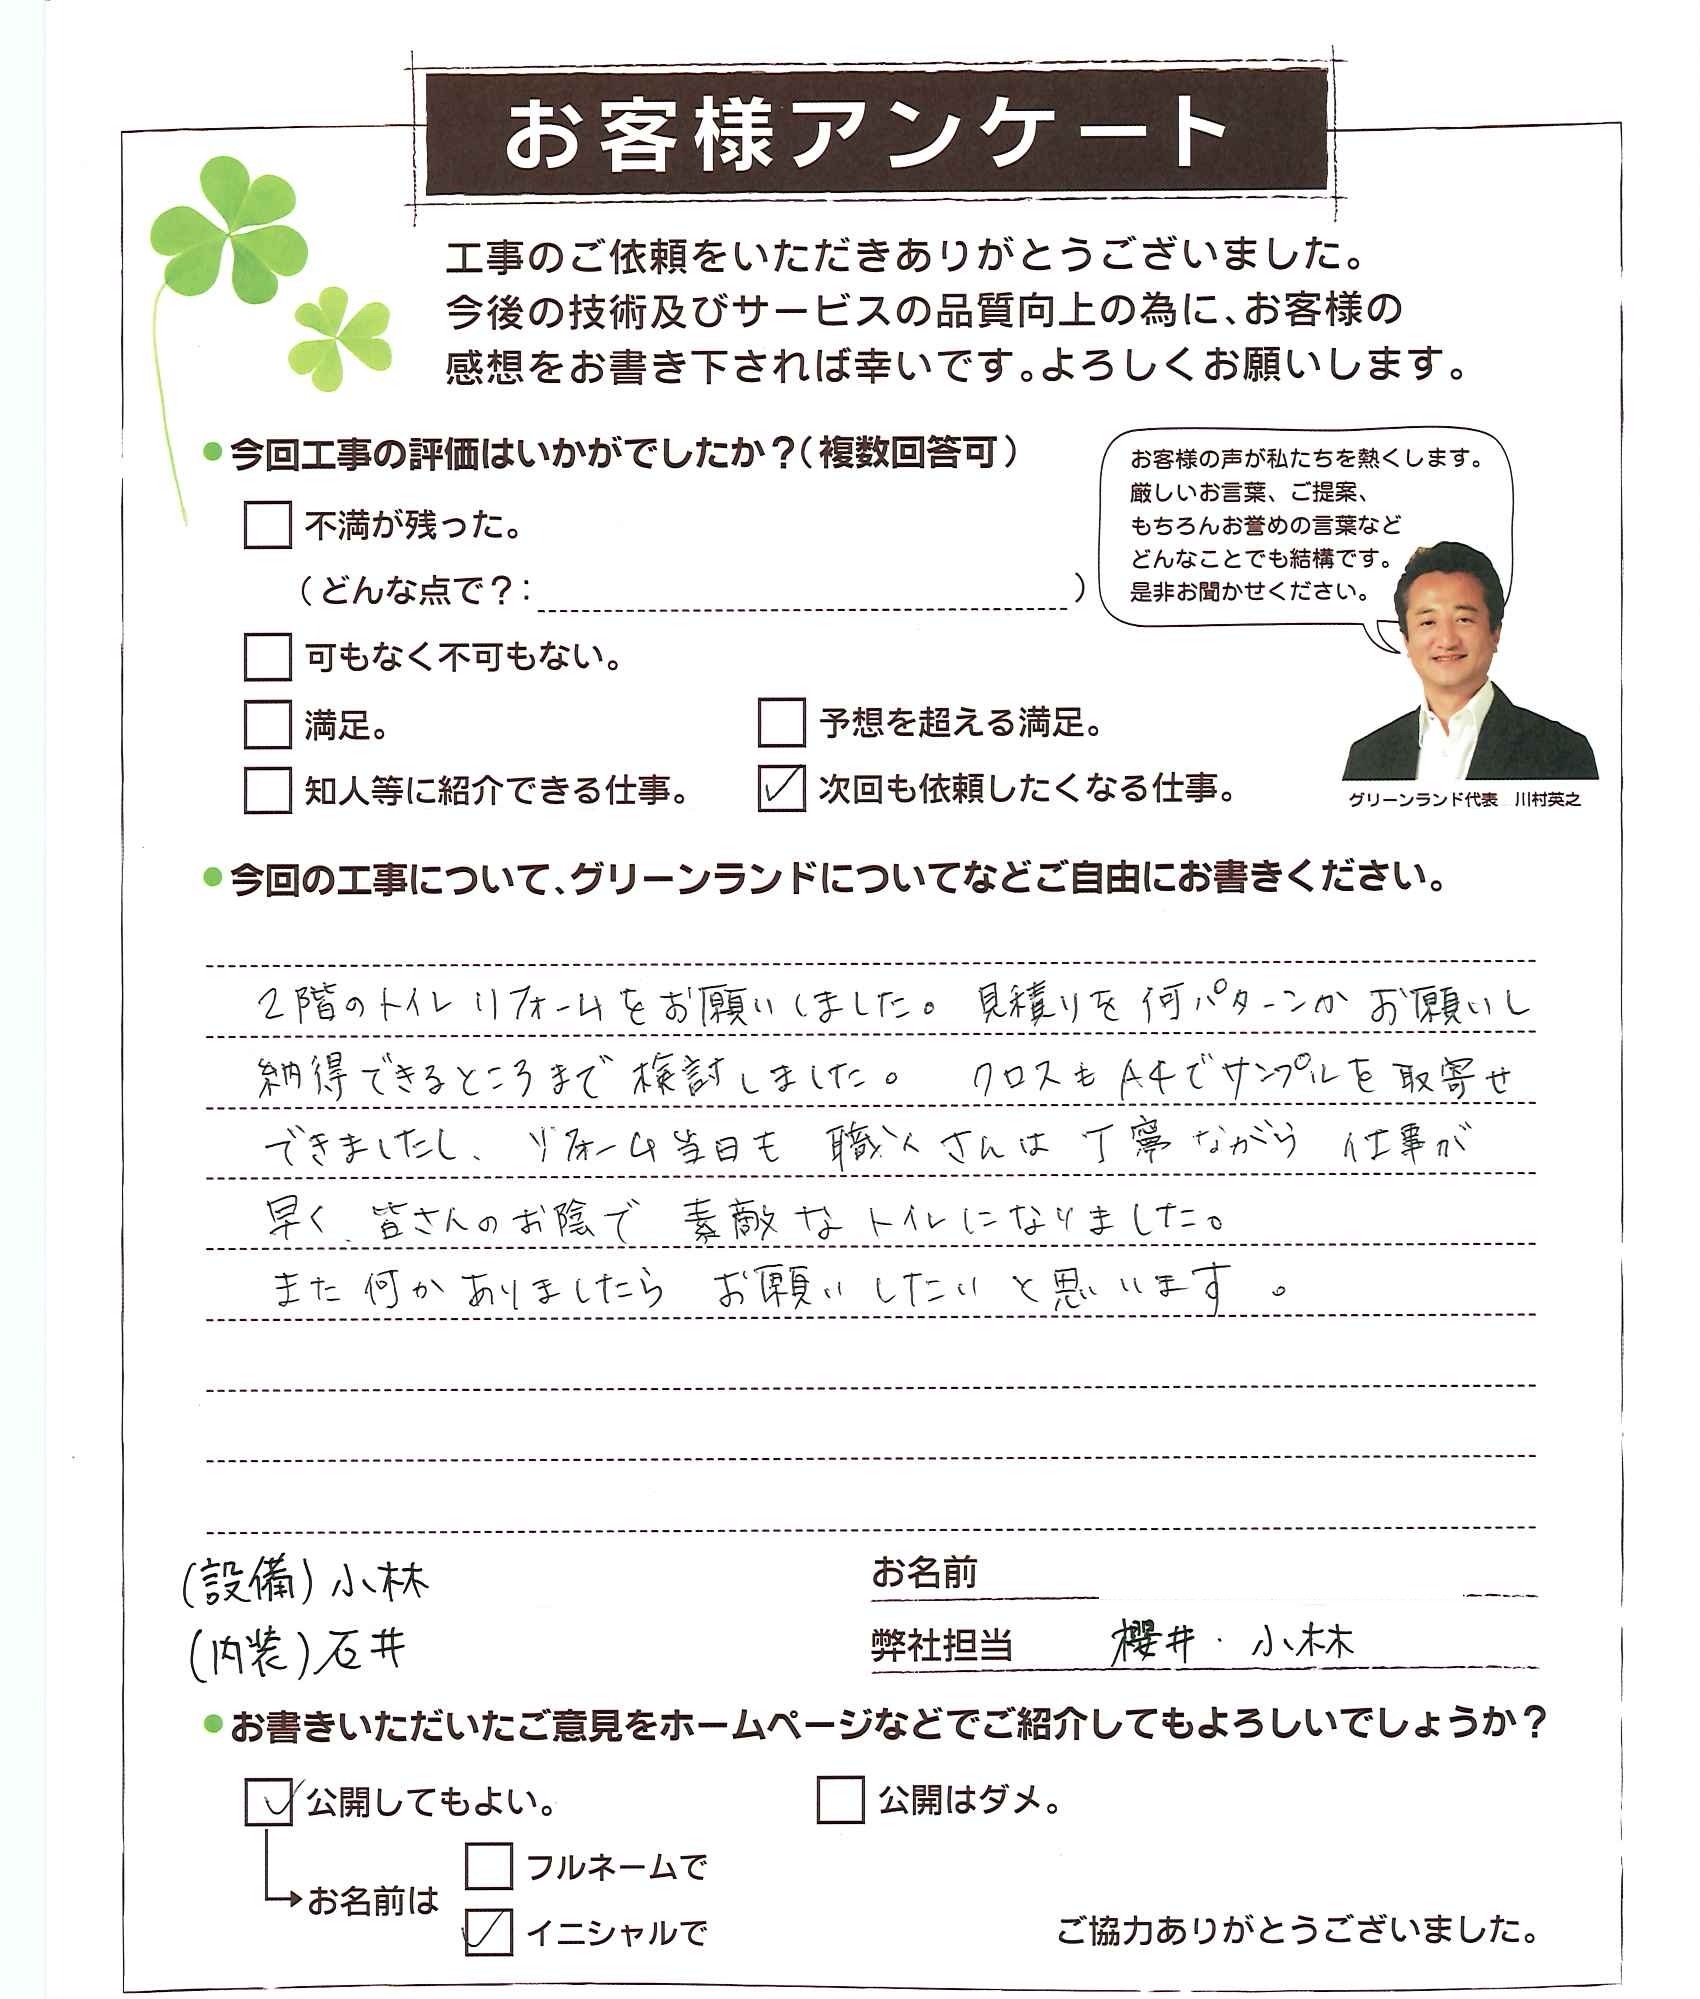 お客様アンケート
工事のご依頼をいただきありがとうございました。
今後の技術及びサービスの品質向上の為に、お客様の
感想をお書き下されば幸いです。よろしくお願いします。
●今回工事の評価はいかがでしたか？（複数回答可）
お客様の声が私たちを熱くします。
厳しいお言葉、ご提案、
もちろんお誉めの言葉など
どんなことでも結構です。
是非お聞かせください。
□不満が残った。
（どんな点で？：　）
□可もなく不可もない。
□満足。　□予想を超える満足。
□知人等に紹介できる仕事。　☑次回も依頼したくなる仕事。
グリーンランド代表　川村英之
●今回の工事について、グリーンランドについてなどご自由にお書きください。
2階のトイレリフォームをお願いしました。見積りを何パターンかお願いし
納得できるところまで検討しました。クロスもA4でサンプルを取寄せ
できましたし、リフォーム当日も職人さんは丁寧ながら仕事が
早く、皆さんのお陰で素敵なトイレになりました。
また何かありましたらお願いしたいと思います。
(設備)小林　お名前
(内装)石井　弊社担当　櫻井・小林
●お書きいただいたご意見をホームページなどでご紹介してもよろしいでしょうか？
☑公開してもよい。　□公開はダメ。
□フルネームで
お名前は
☑イニシャルで
ご協力ありがとうございました。